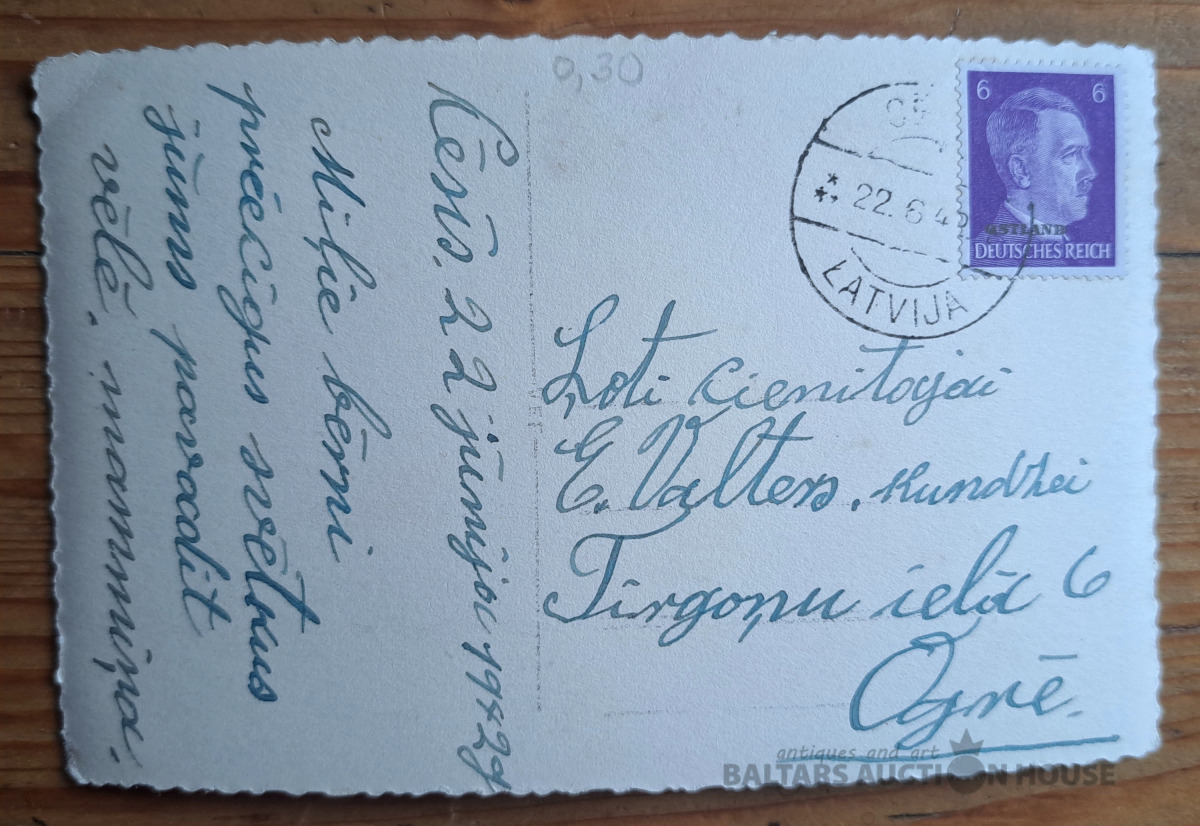 0,30
Cēsīs. 22 jūnijā 1942g
Mīļie bērni
priecīgus svētkus
jūms pavadit
vēlē. mammiņa.
6 6
OSTLAND
DEUTSCHES REICH
22.6.4
LATVIJA
Ļoti cienitajai
E. Valters. kundzei
Tirgoņu ielā 6
Ogrē.
antiques and art
BALTARS AUCTION HOUSE